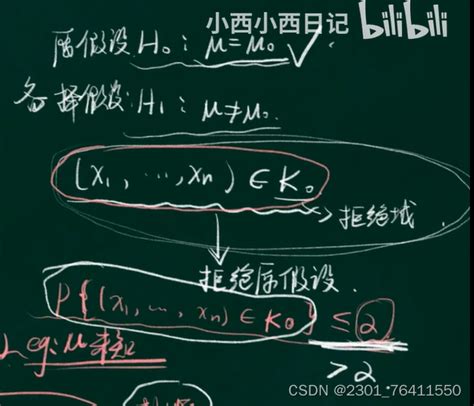 小西小西日记 bilibili
原假设 H₀: μ=μ₀ ✓
备择假设: H₁: μ≠μ₀
(x₁, …, xn) ∈ K₀
拒绝域
拒绝原假设.
P{(x₁, …, xn) ∈ K₀} ≤ 2
eg: μ未知
> 2.
CSDN @2301_76411550